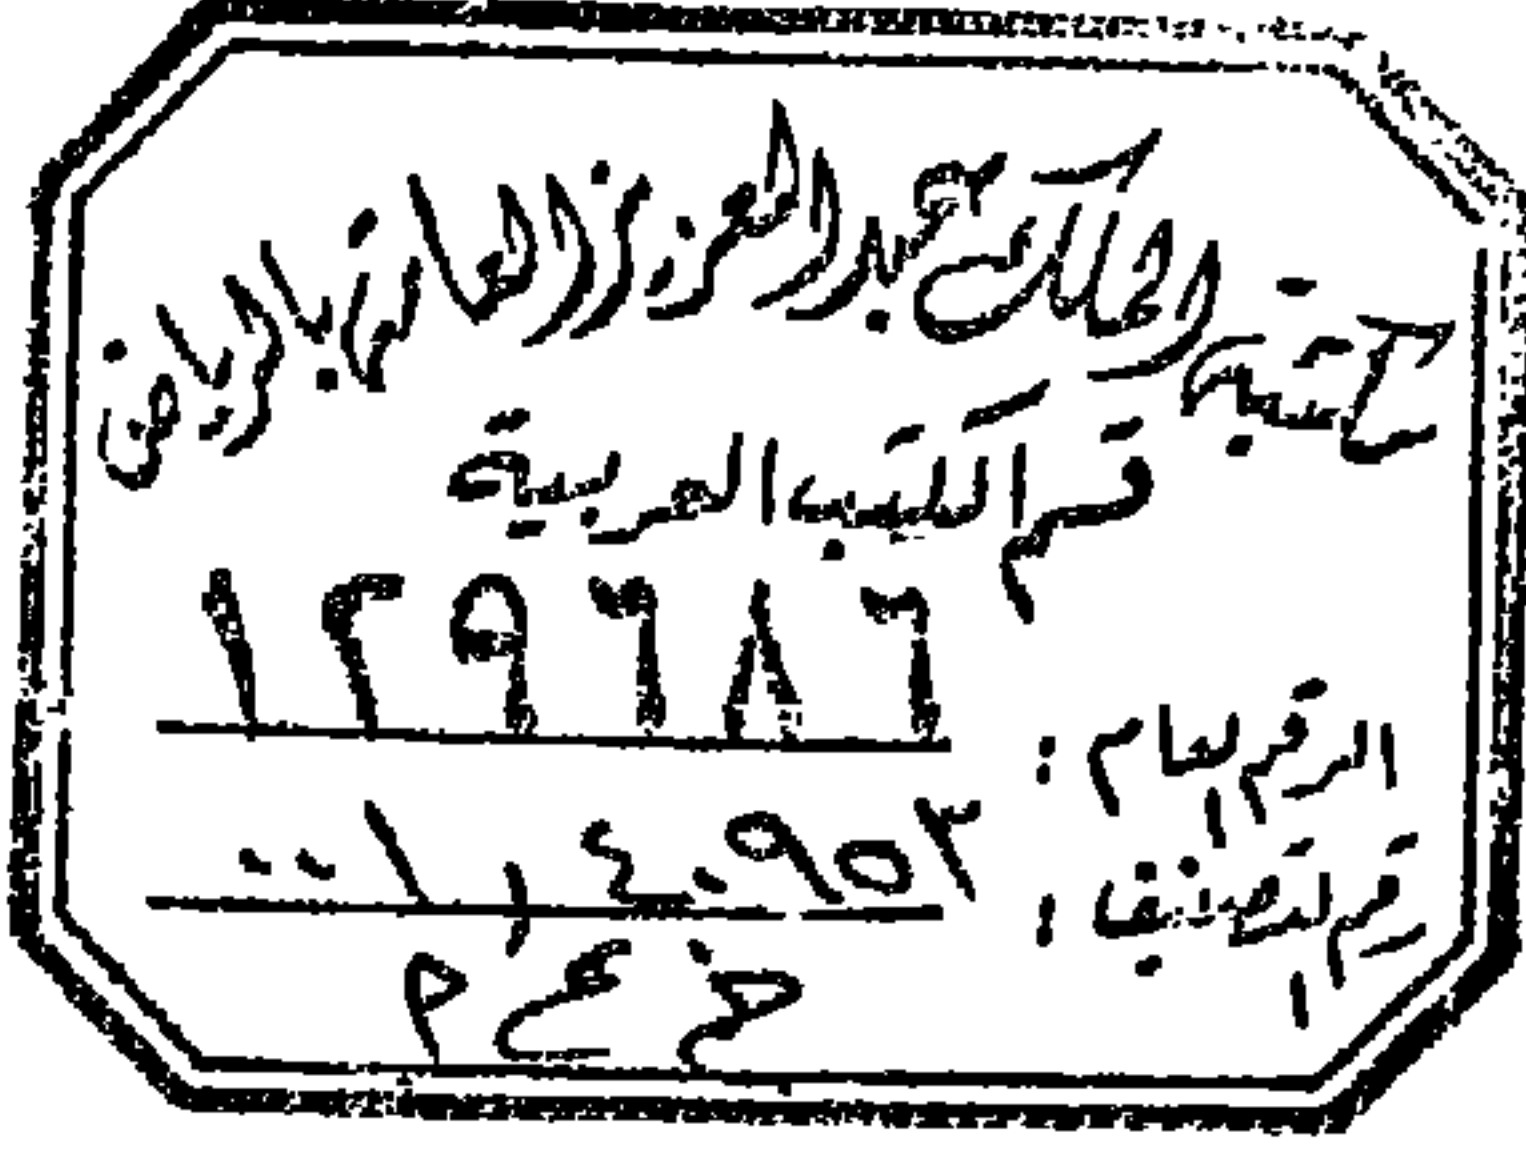 مكتبة الملك عبدالعزيز العامة بالرياض
قسم الكتب العربية
الرقم العام : ١٢٩٦٨٦
رقم التصنيف : ٠٠١,٤٠٩٥٣
خ ع م